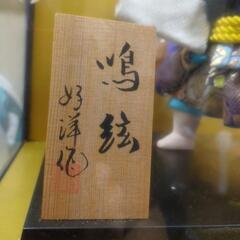 鳴弦
好洋作